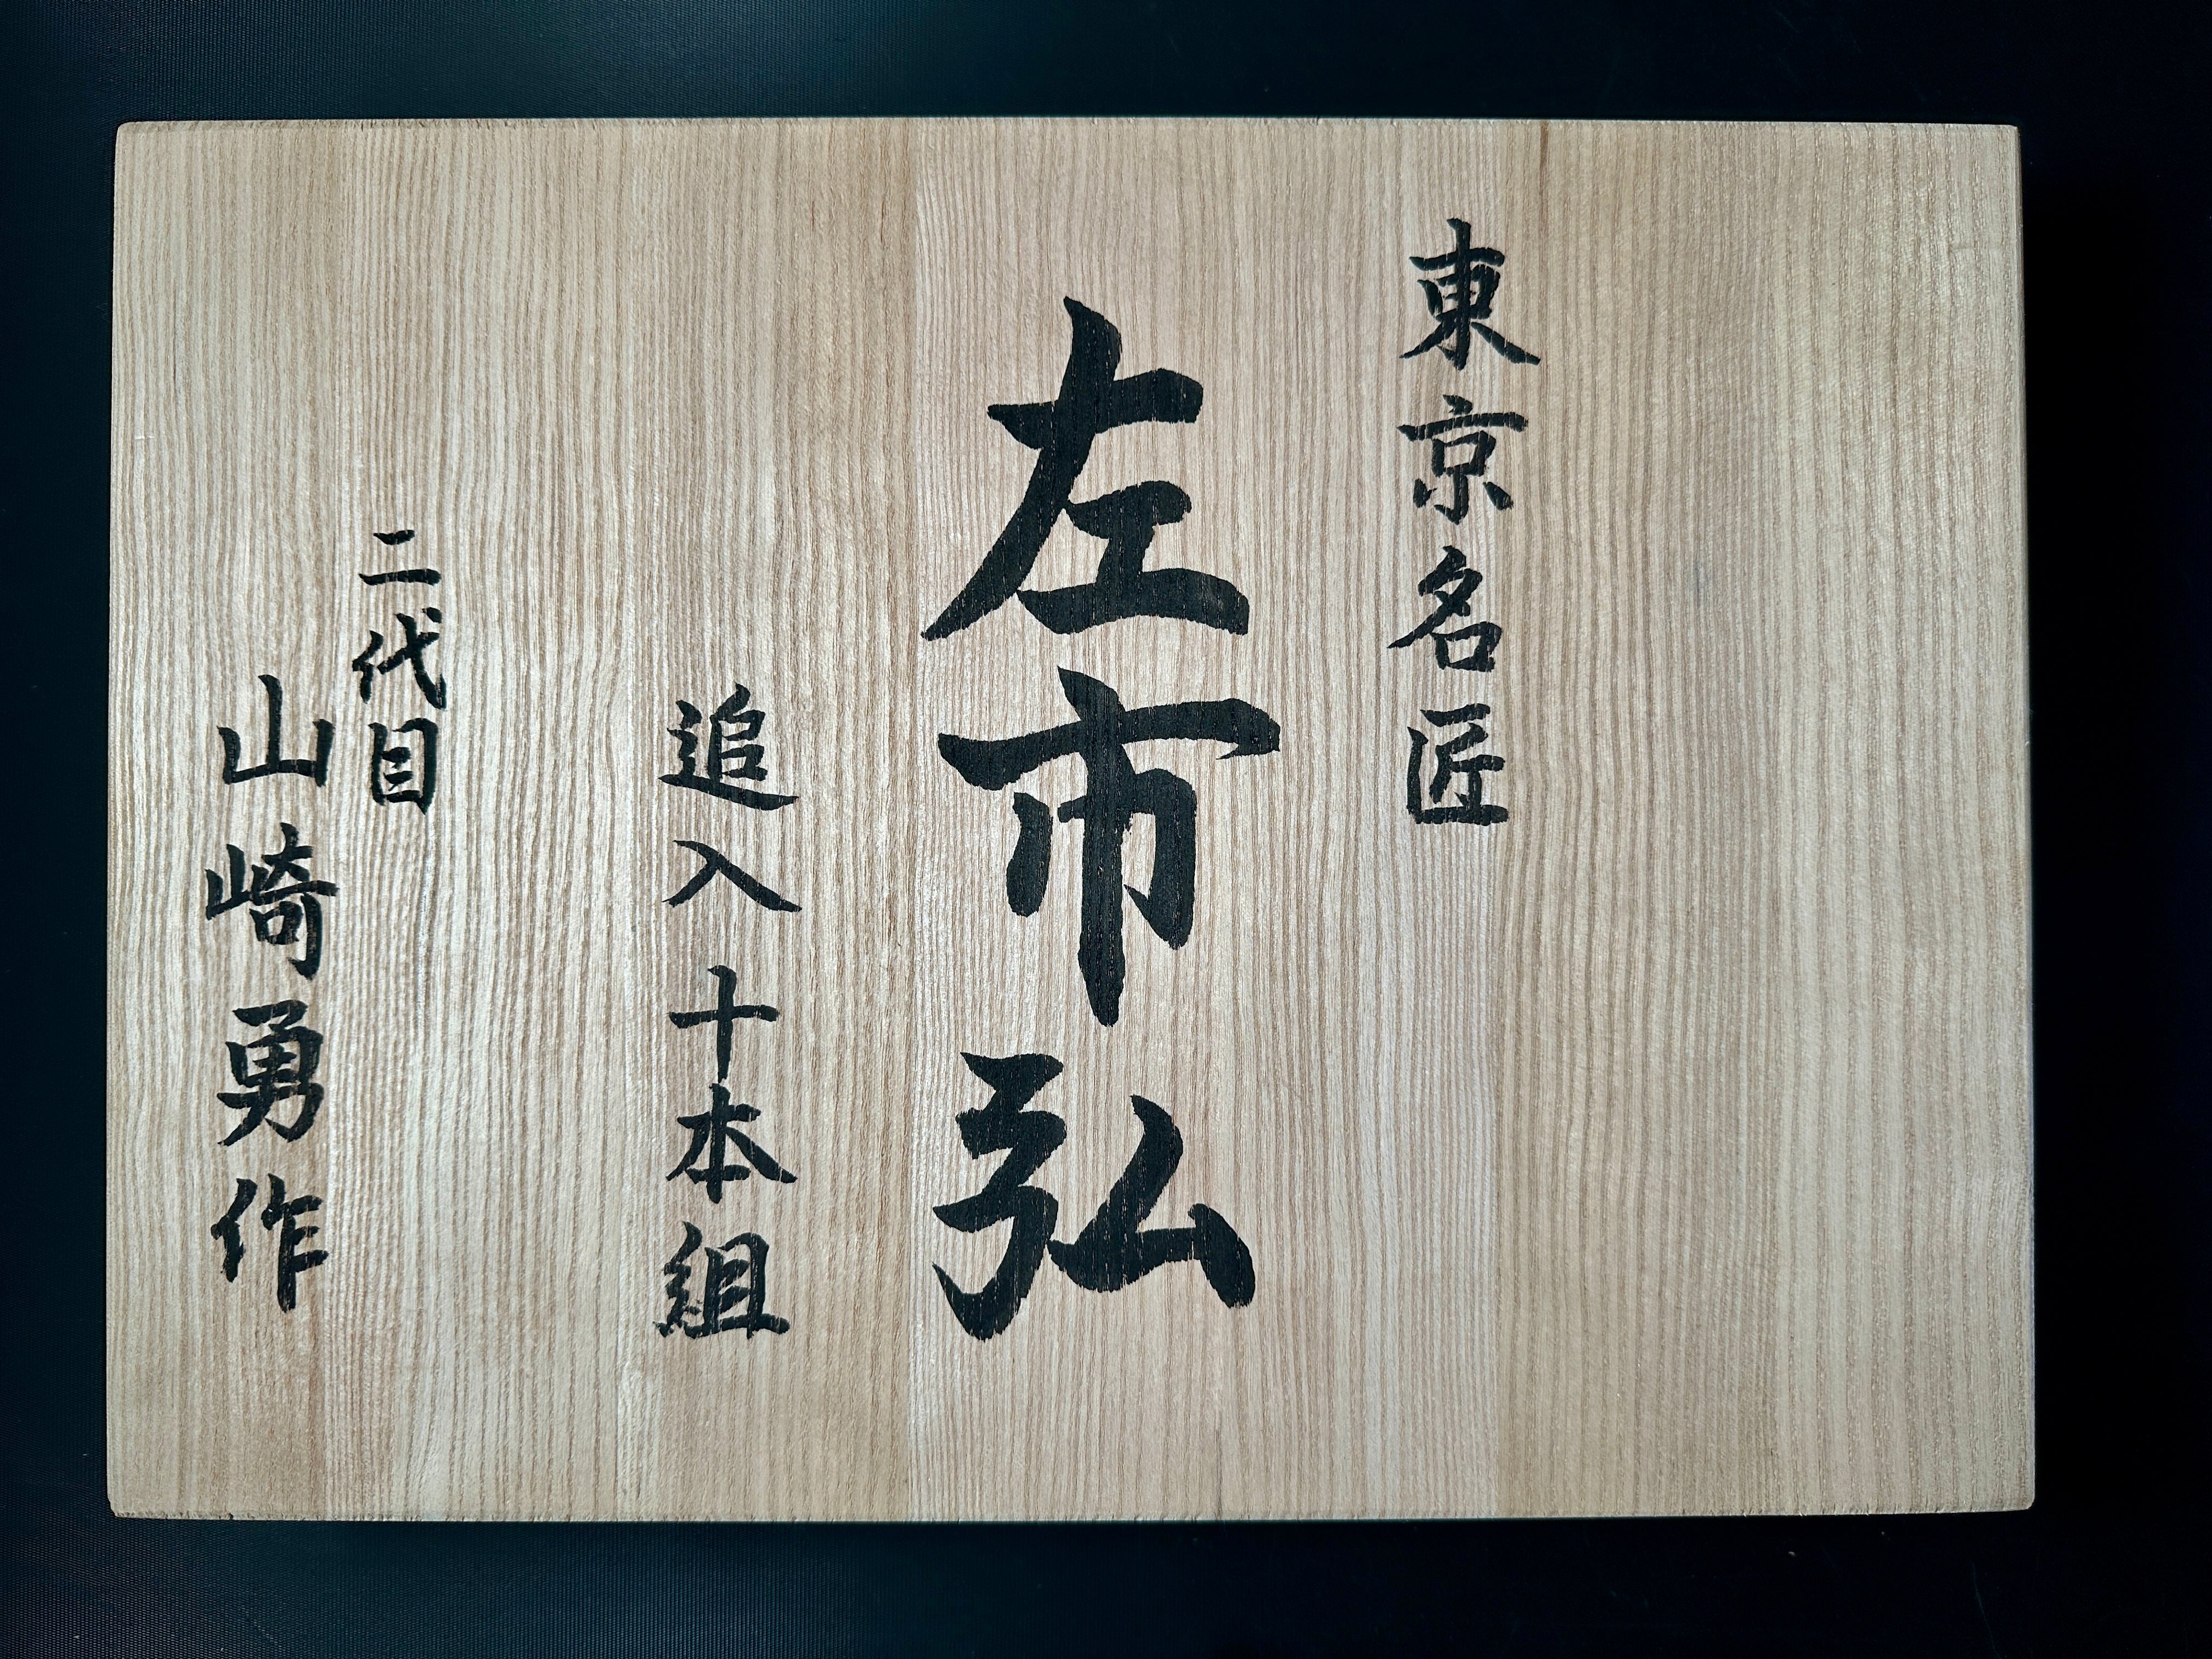 東京名匠
左市弘
追入十本組
二代目
山崎勇作